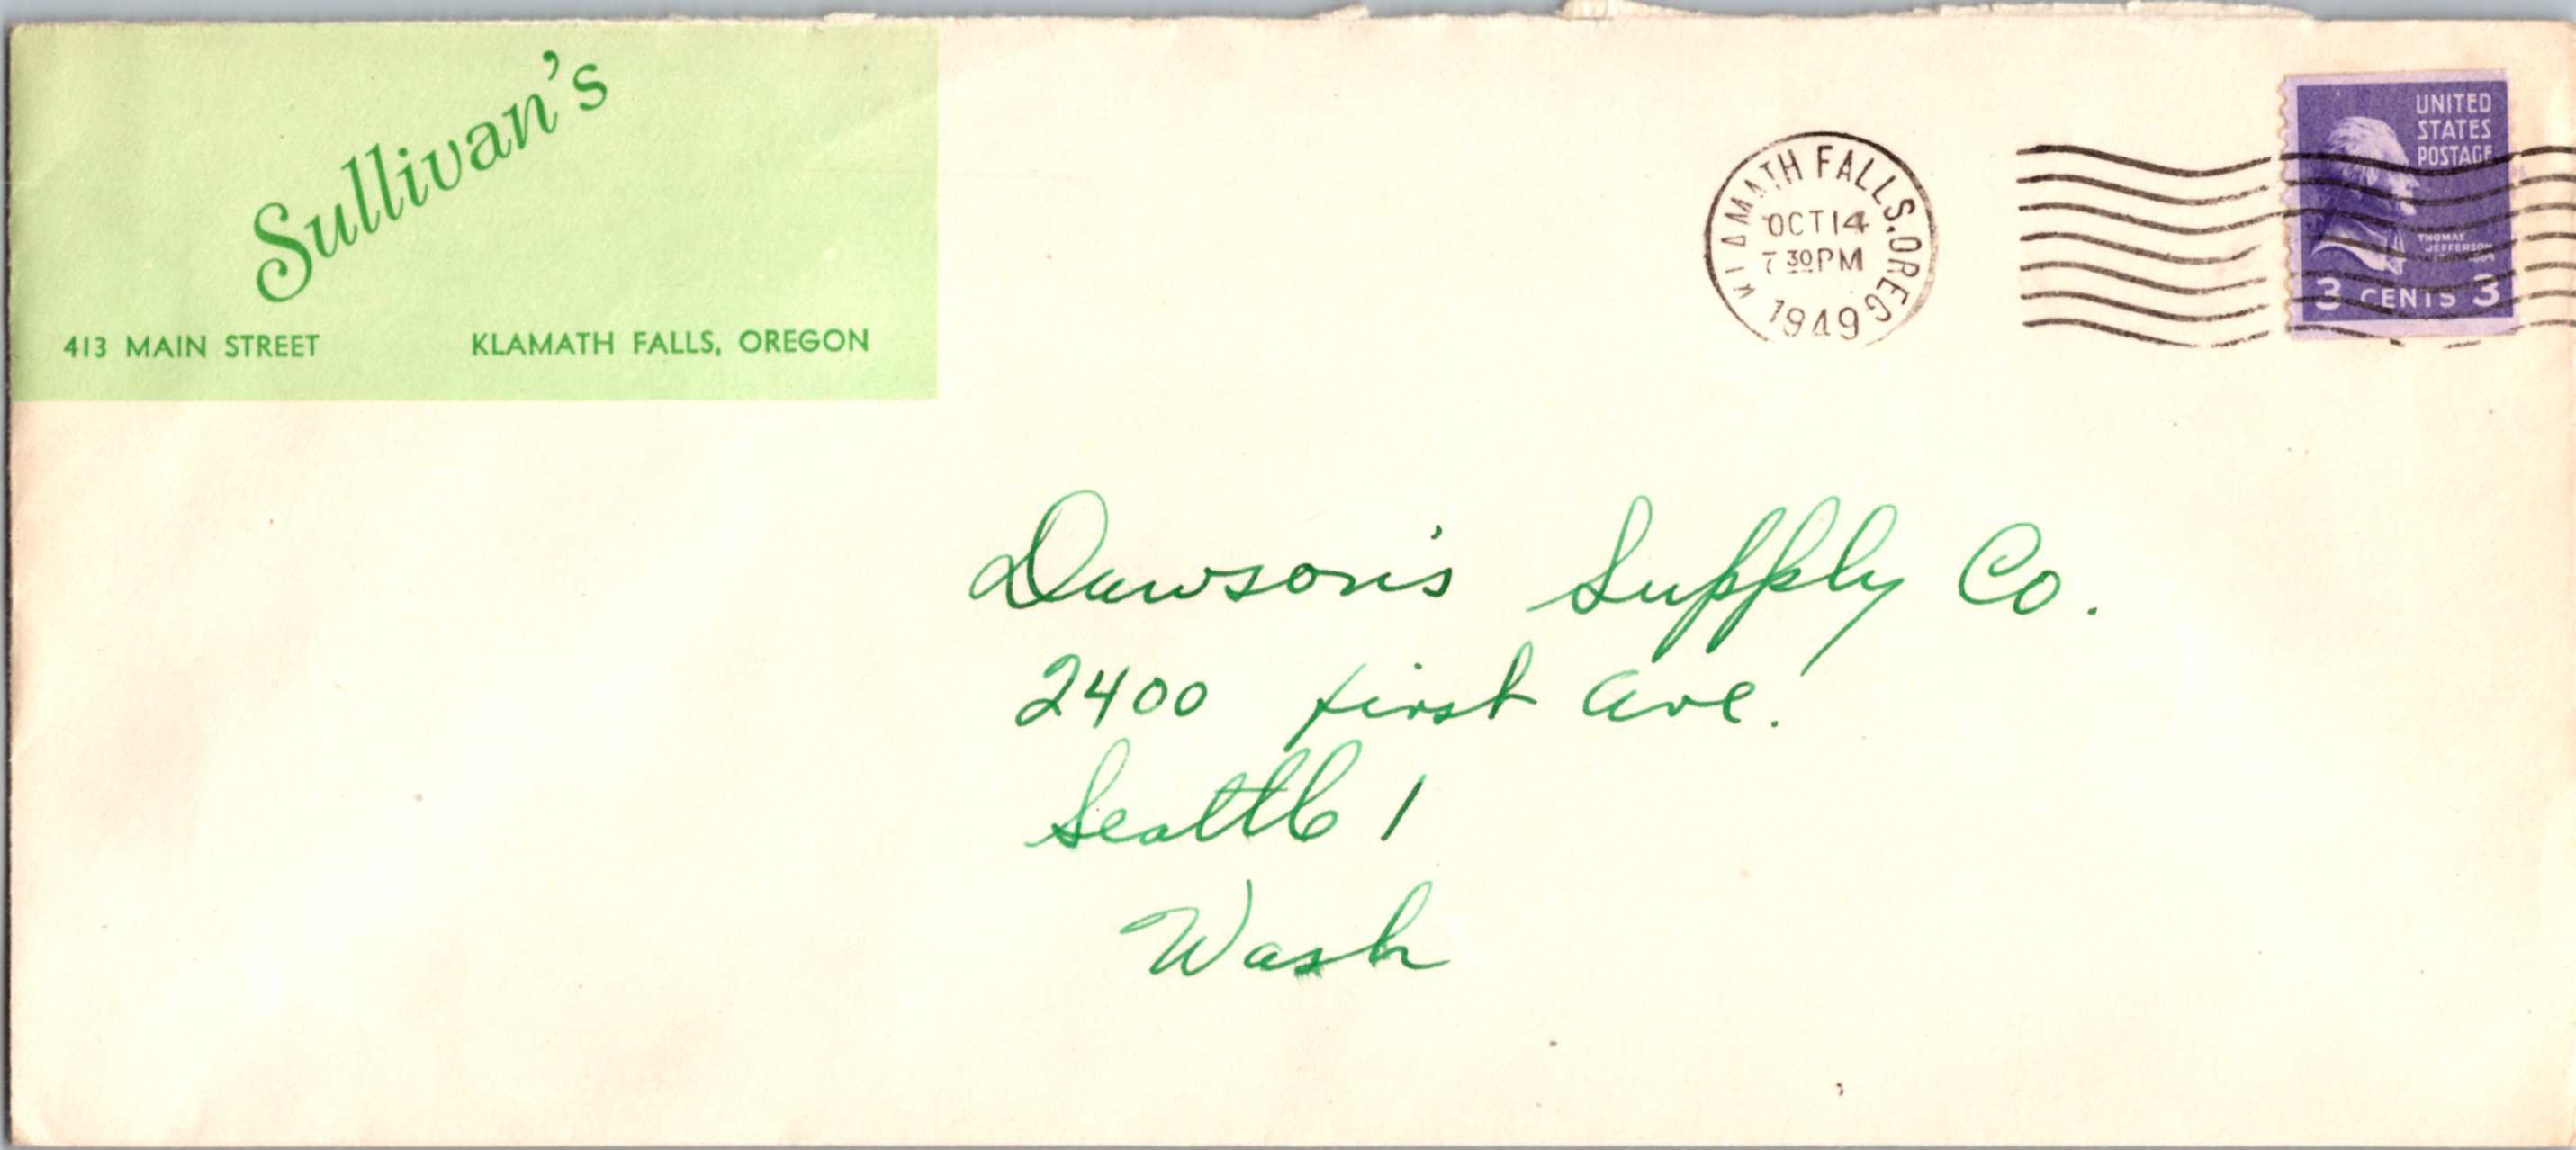 Sullivan's
413 MAIN STREET KLAMATH FALLS, OREGON
KLAMATH FALLS, OREG
OCT 14
7 30 PM
1949
UNITED
STATES
POSTAGE
THOMAS
JEFFERSON
3 CENTS 3
Dawson's Supply Co.
2400 First Ave.
Seattle 1
Wash